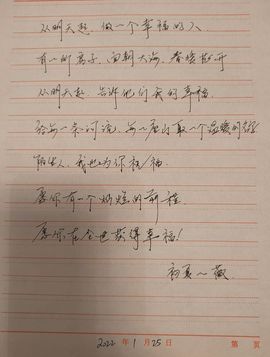 从明天起，做一个幸福的人
有一所房子，面朝大海，春暖花开
从明天起，告诉他们我的幸福，
给每一条河流，每一座山取一个温暖的名字
陌生人，我也为你祝福，
愿你有一个灿烂的前程
愿你在尘世获得幸福！
初夏～
2022 年 1 月 25 日 第 页